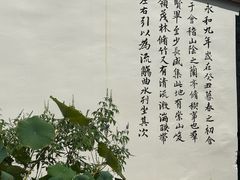 永和九年歲在癸丑暮春之初會
于會稽山陰之蘭亭脩稧事也羣
賢畢至少長咸集此地有崇山峻
領茂林脩竹又有清流激湍暎帶
左右引以為流觴曲水列坐其次